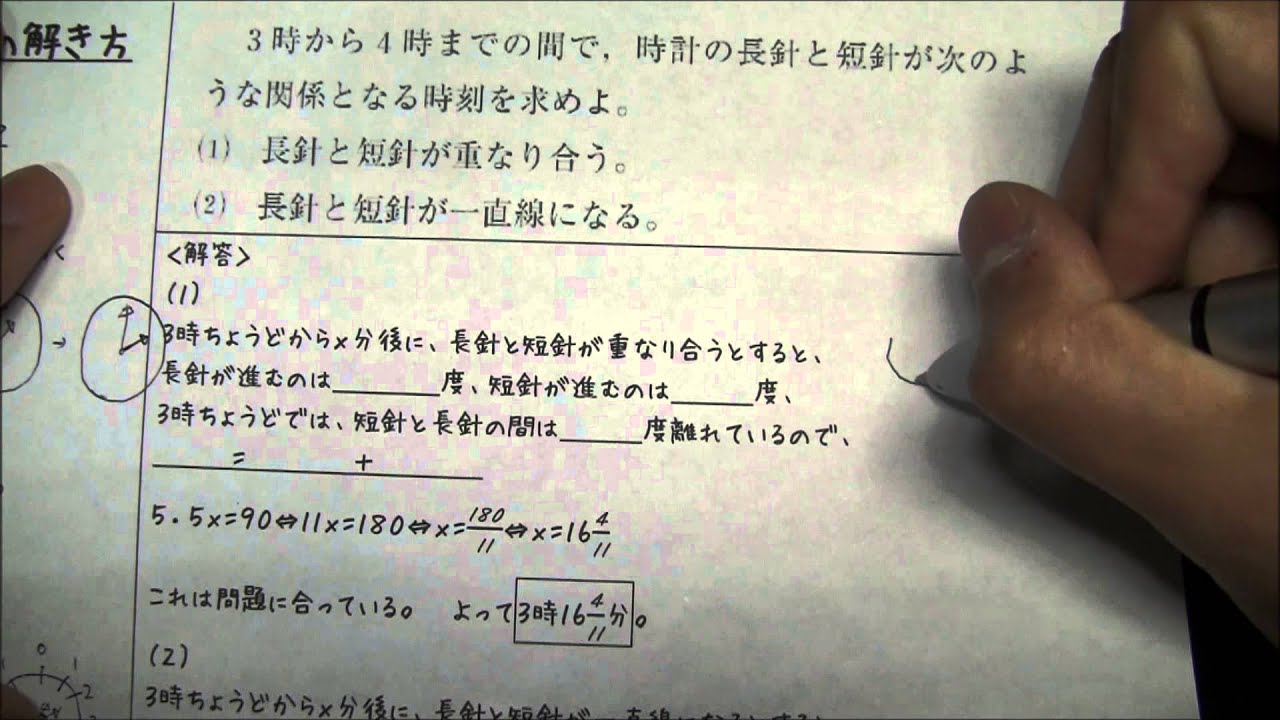 の解き方
3時から4時までの間で，時計の長針と短針が次のよ
うな関係となる時刻を求めよ。
(1) 長針と短針が重なり合う。
(2) 長針と短針が一直線になる。
<解答>
(1)
3時ちょうどからx分後に、長針と短針が重なり合うとすると、
長針が進むのは______度、短針が進むのは______度、
3時ちょうどでは、短針と長針の間は______度離れているので、
= +
5.5x=90⇔11x=180⇔x=180/11⇔x=16 4/11
これは問題に合っている。 よって3時16 4/11分。
(2)
0
1
2
3時ちょうどからx分後に、長針と短針が一直線になるとすると、